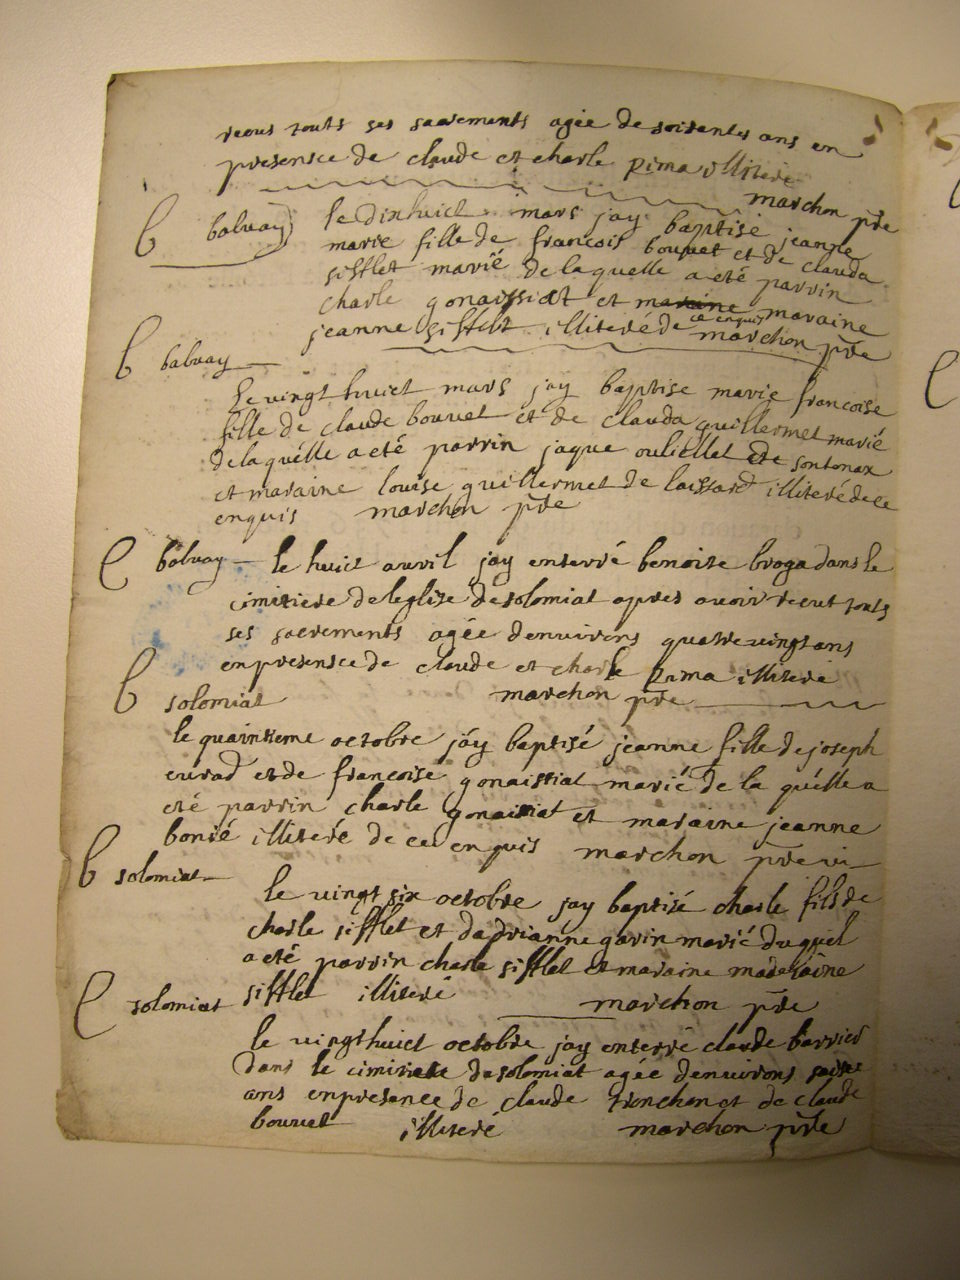 receus touts ses sacrements agée de soisentes ans en
presensce de claude et charle pima illiteré
marchon pr̃e
B bolvay le dixhuict mars jay baptisé jeanne
marie fille de francois bouvet et de clauda
sifflet marié de laquelle a eté parrin
charle gonaissiat et maraine maraine
jeanne sifflet illiteré de ce enquis marchon pr̃e
B balvay
le vingt huict mars jay baptise marie francoise
fille de claude bouvet et de clauda guillermet marié
de laquélle a eté parrin jaque ouliellet de sontonax
et maraine louise guillermet de laissard illiteré de ce
enquis marchon pr̃e
E bolvay le huict avril jay enterré benoite broga dans le
cimitiere de leglise de solomiat apres avoir receut touts
ses sacrements agée denvirons quatrevingt ans
en presensce de claude et charle pima illiteré
marchon pr̃e
B solomiat
le quaintieme octobre jáy baptisé jeanne fille de joseph
evrad et de francoise gonaissiat marié de la quélle a
eté parrin charle gonaissiat et maraine jeanne
bonté illiteré de ce enquis marchon pr̃e vi
B solomiat
le vingt six octobre jay baptisé charle fils de
charle sifflet et dadrianne gavin marié duquel
a eté parrin charle sifflet et maraine madelaine
sifflet illiteré marchon pr̃e
E solomiat
le vingthuict octobre jay enterré claude barrier
dans le cimitiere de solomiat agée denvirons
ans en presance de claude tronchon et de claude
bouvet illiteré marchon pr̃e